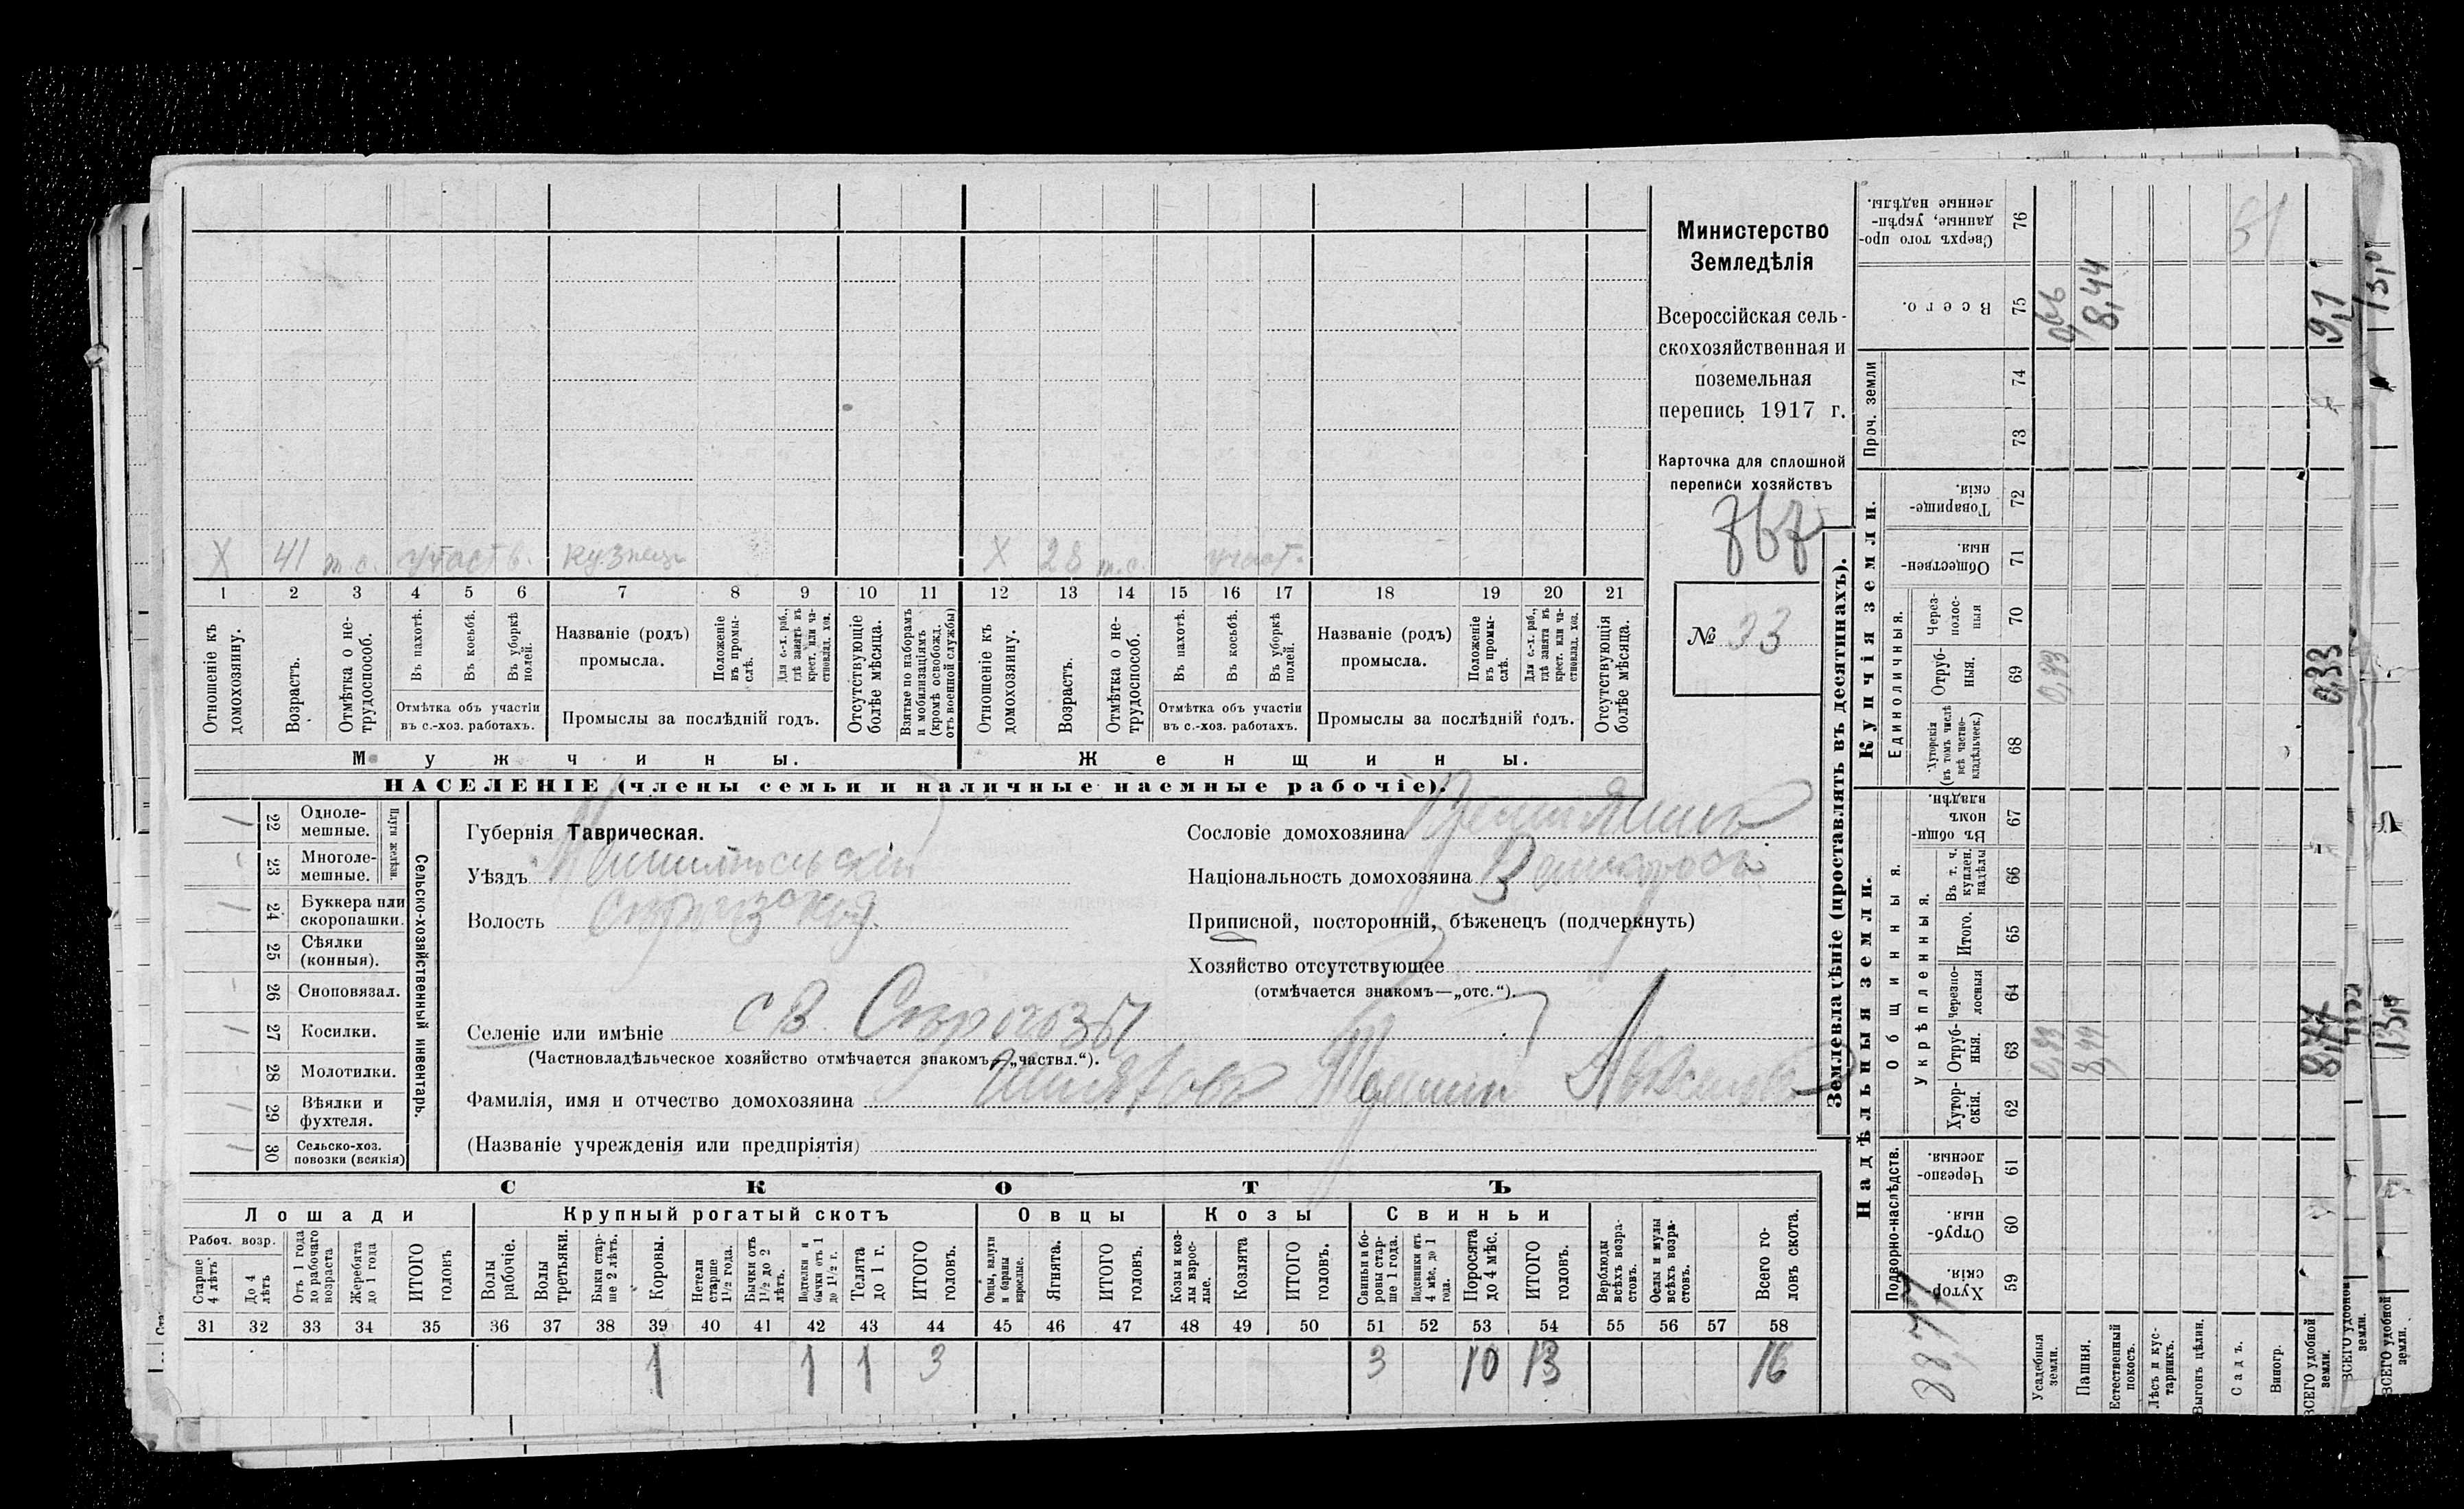 Министерство
Земледѣлія
Всероссійская сель-
скохозяйственная и
поземельная
перепись 1917 г.
Карточка для сплошной
переписи хозяйствъ
767
№ 33
X 41 т.с. участв. кузнецъ X 28 т.с. участ.
1 2 3 4 5 6 7 8 9 10 11 12 13 14 15 16 17 18 19 20 21
Отношеніе къ домохозяину.
Возрастъ.
Отмѣтка о не-трудоспособ.
Въ пахотѣ.
Въ косьбѣ.
Въ уборкѣ полей.
Отмѣтка объ участіи въ с.-хоз. работахъ.
Названіе (родъ) промысла.
Положеніе въ промы-слѣ.
Для с.-х. раб., гдѣ занятъ въ крест. или ча-стновлад. хоз.
Промыслы за послѣдній годъ.
Отсутствующіе болѣе мѣсяца.
Взятые по наборамъ и мобилизаціямъ (кромѣ освобожд. отъ военной службы)
Отношеніе къ домохозяину.
Возрастъ.
Отмѣтка о не-трудоспособ.
Въ пахотѣ.
Въ косьбѣ.
Въ уборкѣ полей.
Отмѣтка объ участіи въ с.-хоз. работахъ.
Названіе (родъ) промысла.
Положеніе въ промы-слѣ.
Для с.-х. раб., гдѣ занята въ крест. или ча-стновлад. хоз.
Промыслы за послѣдній годъ.
Отсутствующія болѣе мѣсяца.
Мужчины. Женщины.
НАСЕЛЕНІЕ (члены семьи и наличные наемные рабочіе).
Сельско-хозяйственный инвентарь.
Плуги желѣзн.
22 Одноле-мешные. 1
23 Многоле-мешные. -
24 Буккера или скоропашки. 1
25 Сѣялки (конныя).
26 Сноповязал. -
27 Косилки. 1
28 Молотилки. -
29 Вѣялки и фухтеля. 1
30 Сельско-хоз. повозки (всякія) 1
Губернія Таврическая.
Уѣздъ Мелитопольскій
Волость
Селеніе или имѣніе с В. Сѣрогозы
(Частновладѣльческое хозяйство отмѣчается знакомъ—„частвл.“).
Фамилія, имя и отчество домохозяина
(Названіе учрежденія или предпріятія)
Сословіе домохозяина Крестьянинъ
Національность домохозяина Великороссъ
Приписной, посторонній, бѣженецъ (подчеркнуть)
Хозяйство отсутствующее
(отмѣчается знакомъ—„отс.“).
СКОТЪ
Лошади Крупный рогатый скотъ Овцы Козы Свиньи
Рабоч. возр.
Старше 4 лѣтъ
До 4 лѣтъ
Отъ 1 года до рабочаго возраста
Жеребята до 1 года
ИТОГО головъ
Волы рабочіе.
Волы третьяки.
Быки стар-ше 2 лѣтъ.
Коровы.
Нетели старше 1½ года.
Бычки отъ 1½ до 2 лѣтъ.
Подтелки и бычки отъ 1 до 1½ г.
Телята до 1 г.
ИТОГО головъ.
Овцы, валухи и бараны взрослые.
Ягнята.
ИТОГО головъ.
Козы и коз-лы взрос-лые.
Козлята
ИТОГО головъ.
Свиньи и бо-ровы стар-ше 1 года.
Подсвинки отъ 4 мѣс. до 1 года.
Поросята до 4 мѣс.
ИТОГО головъ.
Верблюды всѣхъ возра-стовъ.
Ослы и мулы всѣхъ возра-стовъ.
Всего го-ловъ скота.
31 32 33 34 35 36 37 38 39 40 41 42 43 44 45 46 47 48 49 50 51 52 53 54 55 56 57 58
1 1 1 3 3 10 13 16
Землевладѣніе (проставлять въ десятинахъ).
Надѣльныя земли. Купчія земли. Проч. земли
Подворно-наслѣдств.
Общинныя.
Укрѣпленныя.
Единоличныя.
Хутор-скія. 59
Отруб-ныя. 60
Черезпо-лосныя. 61
Хутор-скія. 62
Отруб-ныя. 63
Черезпо-лосныя 64
Итого. 65
Въ т. ч. куплен. надѣлы 66
Въ общи-номъ владѣн. 67
Хуторскія (въ томъ числѣ всѣ частно-владѣльческ.) 68
Отруб-ныя. 69
Через-полос-ныя 70
Обществен-ныя. 71
Товарище-скія. 72
73
74
Всего. 75
Сверхъ того про-данные, укрѣп-ленные надѣлы. 76
Усадебныя земли. 0,33 0,33 0,66
Пашня. 8,44 8,44
Естественный покосъ.
Лѣсъ и кус-тарникъ.
Выгонъ цѣлин.
Садъ.
Виногр.
ВСЕГО удобной земли. 8,77 0,33 9,1
8,77
ВСЕГО удобной земли.
ВСЕГО удобной земли. 13,0